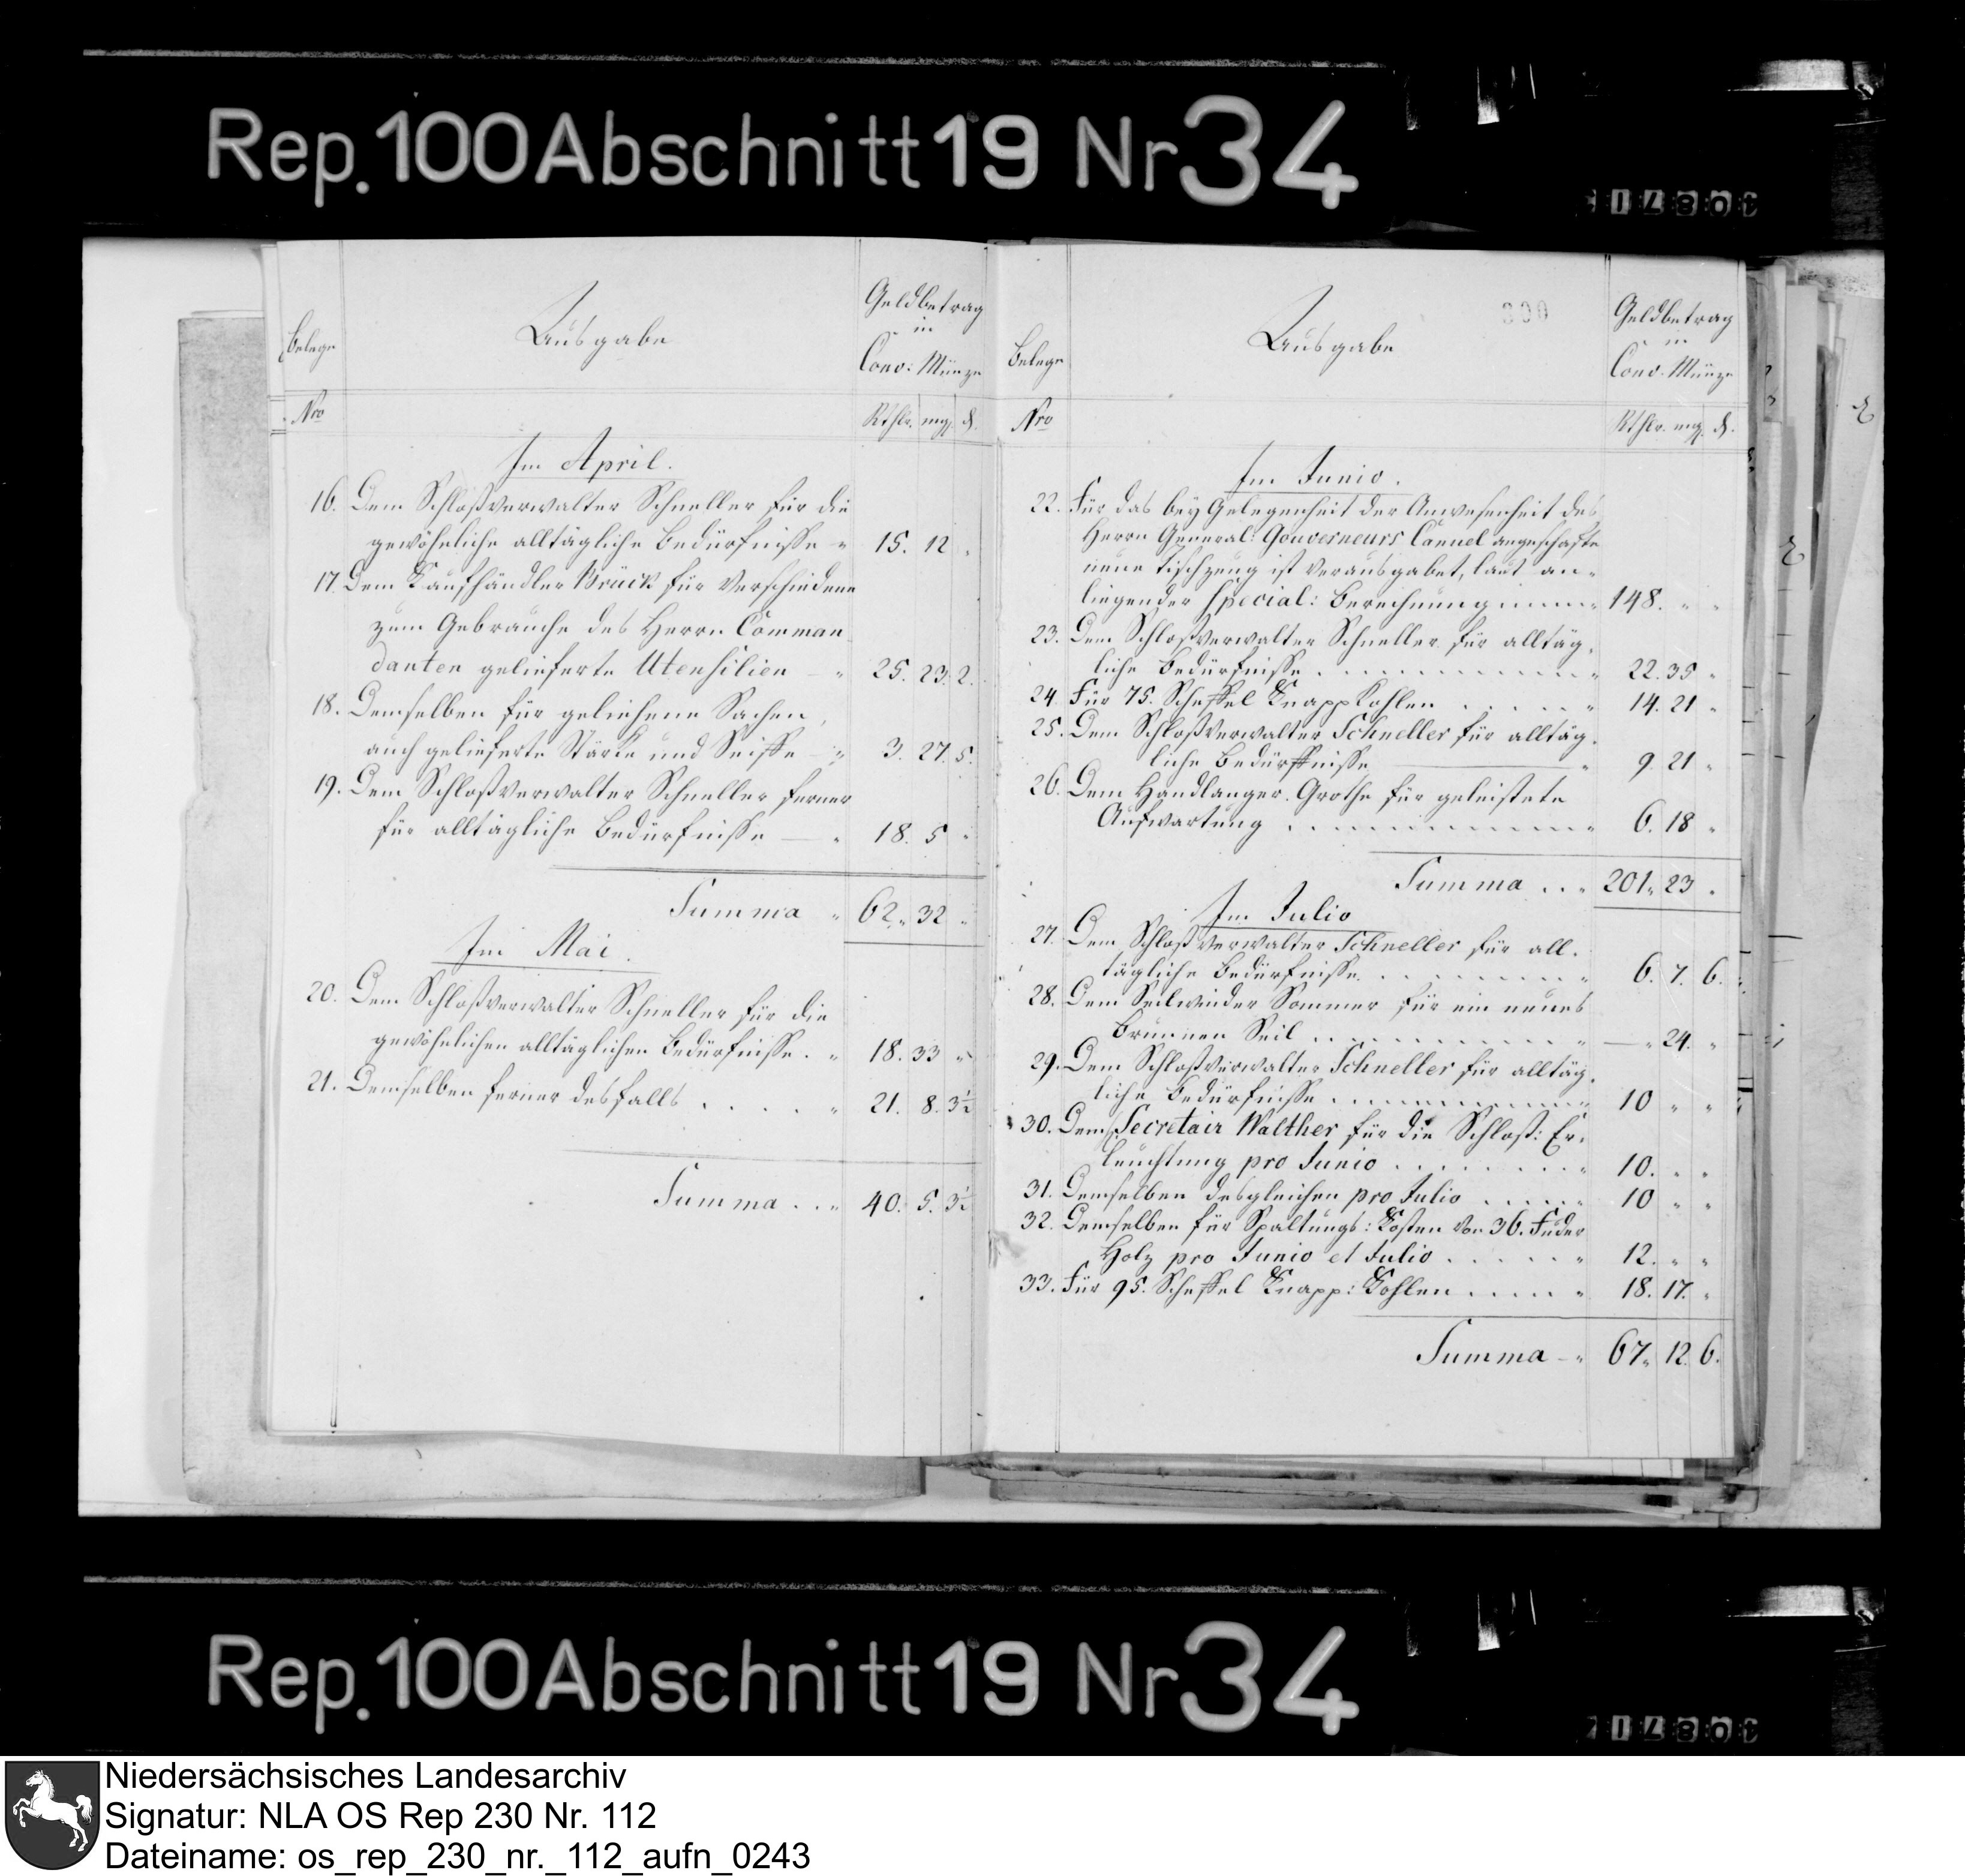 Rep.100 Abschnitt 19 Nr 34
Belege
Ausgabe
Geldbetrag
in
Conv: Münze
Nro
Rthlr. mg. d.
Im April.
16. Dem Schloßverwalter Schneller für die
gewöhnliche alltägliche Bedürfnisse " 15. 12 "
17. Dem Kaufhändler Brück für verschiedene
zum Gebrauche des Herrn Comman
danten gelieferte Utensilien — " 25. 23. 2.
18. Demselben für geliehene Sachen,
auch gelieferte Stärke und Seiffe — " 3. 27. 5.
19. Dem Schloßverwalter Schneller ferner
für alltägliche Bedürfnisse — " 18. 5 "
Summa " 62 " 32 "
Im Mai.
20. Dem Schloßverwalter Schneller für die
gewöhnlichen alltäglichen Bedürfnisse. " 18. 33 "
21. Demselben ferner desfalls . . . . . " 21. 8. 3½
Summa . . " 40. 5. 3½
Belege
Ausgabe
Geldbetrag
in
Conv. Münze
Nro
Rthlr. mg. d.
Im Junio.
22. Für das bey Gelegenheit der Anwesenheit des
Herrn General: Gouverneurs Canuel angeschafte
neue Tischzeug ist verausgabet, laut an-
liegender Special: Berechnung " 148. " "
23. Dem Schloßverwalter Schneller für alltäg-
liche Bedürfnisse . . . . . . . . " 22. 35 "
24 Für 75. Scheffel Knappkohlen . . . . . " 14. 21 "
25. Dem Schloßverwalter Schneller für alltäg-
liche Bedürffnisse — " 9. 21 "
26. Dem Handlanger Grothe für geleistete
Aufwartung . . . . . . . . " 6. 18 "
Summa . . " 201 " 23 "
Im Julio
27. Dem Schloßverwalter Schneller für all-
tägliche Bedürfnisse . . . . . . . . " 6. 7. 6.
28. Dem Seilwinder Sommer für ein neues
Brunnen Seil . . . . . . . . " — " 24. "
29. Dem Schloßverwalter Schneller für alltäg-
liche Bedürfnisse . . . . . . . . " 10 " "
30. Dem Secretair Walther für die Schloß: Er-
leuchtung pro Junio . . . . . . . . " 10. " "
31. Demselben desgleichen pro Julio . . . . . " 10 " "
32. Demselben für Spaltungs: Kosten von 36. Fuder
Holz pro Junio et Julio . . . . . " 12. " "
33. Für 95. Scheffel Knapp: Kohlen . . . . . " 18. 17. "
Summa — " 67 " 12. 6.
Rep.100 Abschnitt 19 Nr 34
Niedersächsisches Landesarchiv
Signatur: NLA OS Rep 230 Nr. 112
Dateiname: os_rep_230_nr._112_aufn_0243